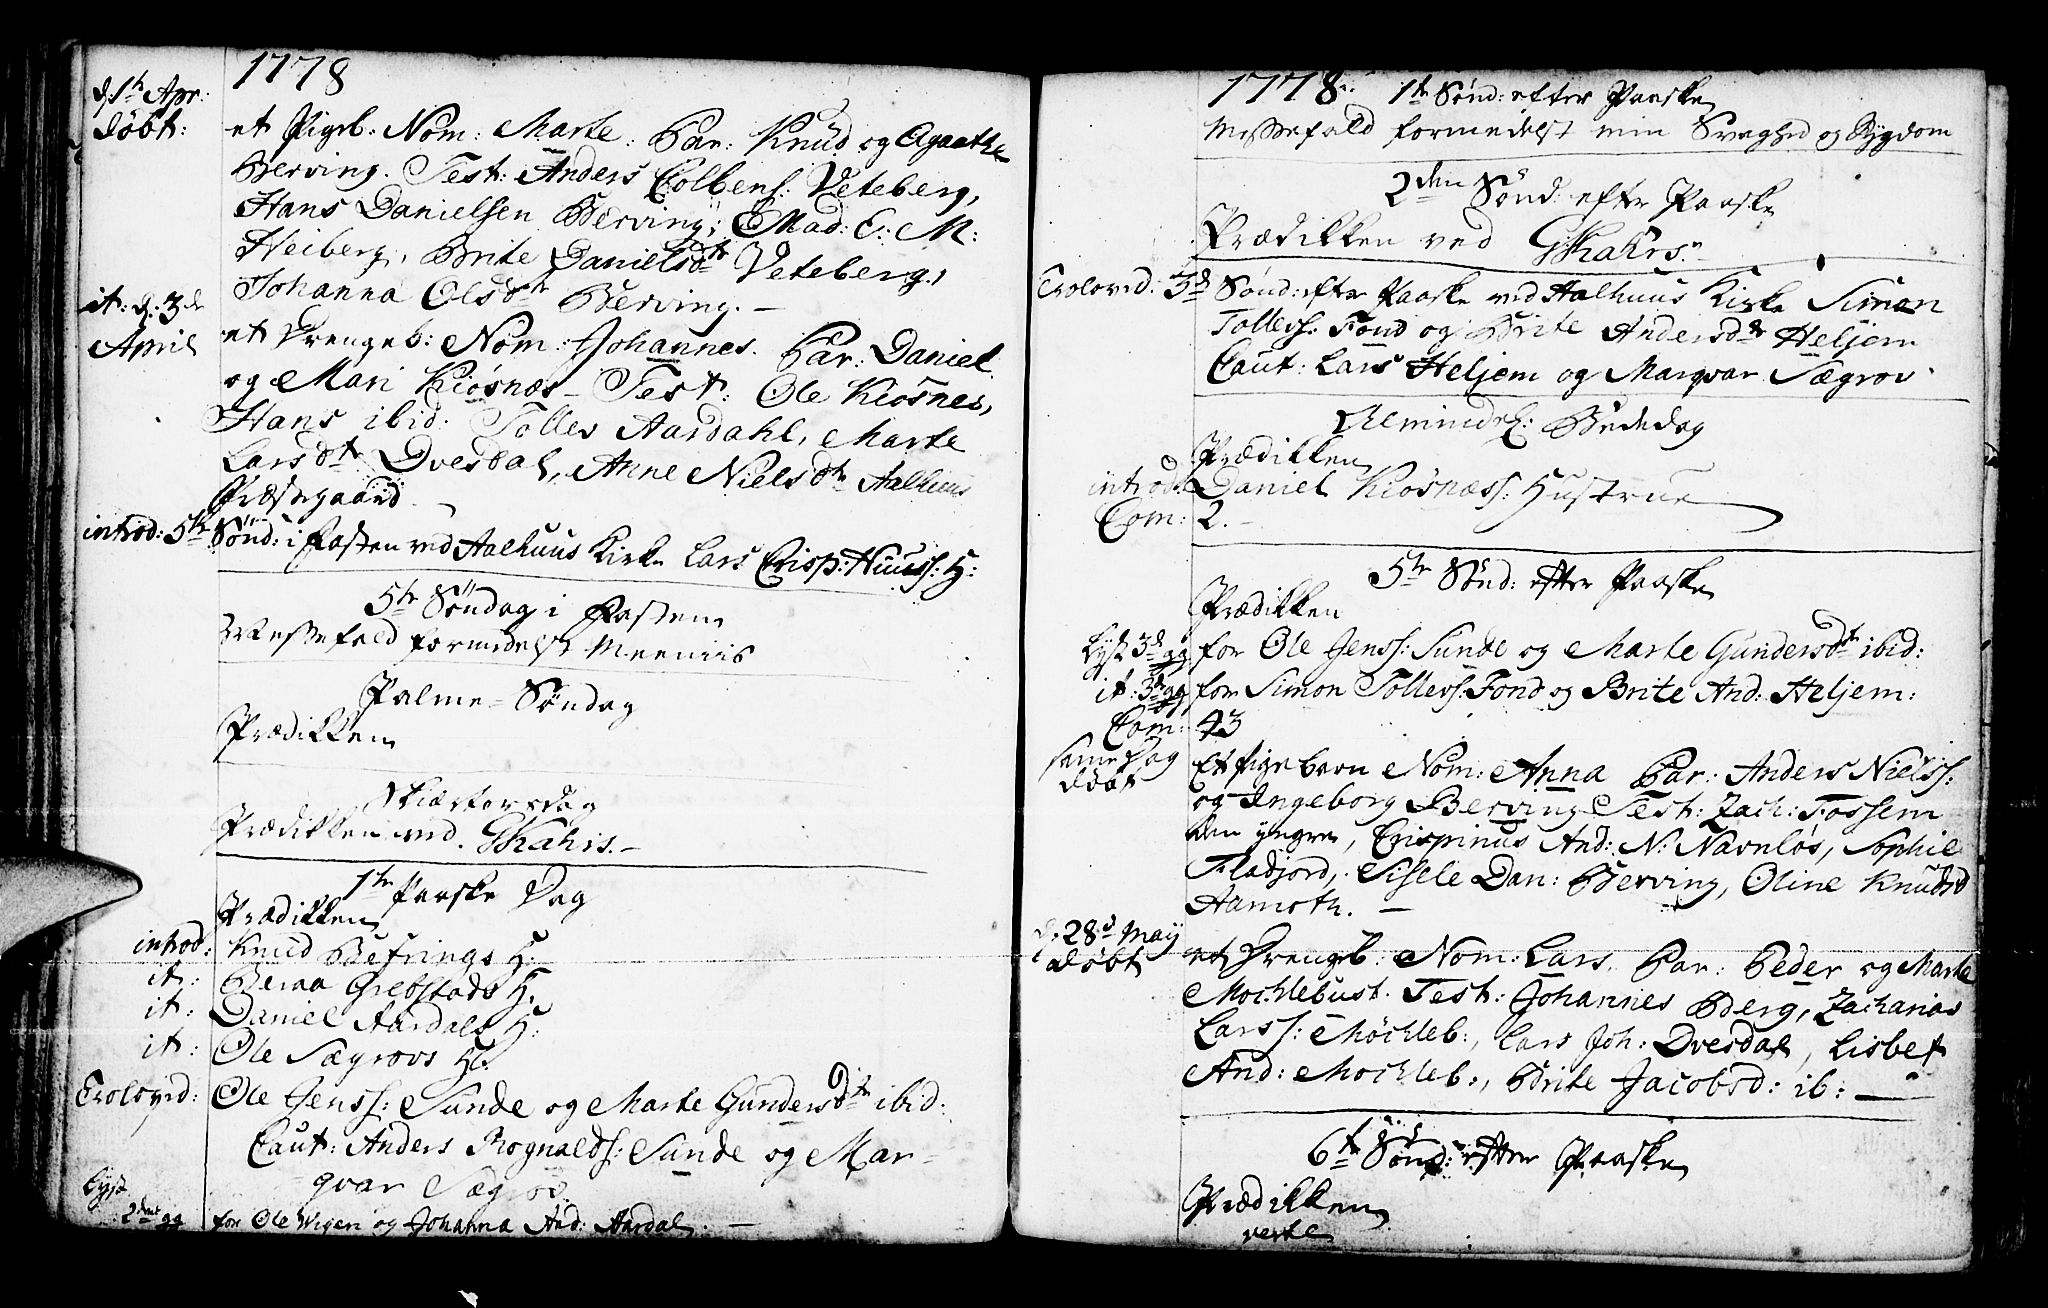 1778
d. 1te Apr:
döbt: et Pigeb: Nom: Marte. Par: Knud og Agaathe
Berving. Test: Anders Colbens: Veteberg,
Hans Danielsen Berving; Mad: C: M:
Heiberg, Brite Danielsdtr Veteberg,
Johanna Olsdtr Berving. —
it: d: 3de
April et Drengeb: Nom: Johannes. Par: Daniel
og Mari Kiösnæs — Test: Ole Kiösnes,
Hans ibid: Tollev Aardahl, Marte
Larsdtr Dvesdal, Anne Nielsdtr Aalhuus
Præstegaard
introd: 5te Sönd: i Fasten ved Aalhuus Kirke Lars Crisp: Huuss: H:
5te Söndag i Fasten
Messefald formedelst Meeniis
Palme-Söndag
Prædikken
Skiærtorsdag
Prædikken ved GKahrs. —
1te Paaske Dag
Prædikken
introd: Knud Befrings H:
it: Berna Grebstads H:
it: Daniel Aardals H:
it: Ole Sægrovs H:
Trolovid: Ole Jenss: Sunde og Marte Gundersdtr ibid:
Caut: Anders Rognalds: Sunde og Mar-
qvar Sægrov.
Lyst
2den gg for Ole Wigen og Johanna And: Aardal. —
1778. 1te Sönd: efter Paaske
Messefald formedelst min Svaghed og Sygdom
2den Sönd: efter Paaske
Prædikken ved GKahrs. —
Trolovid: 3de Sönd: efter Paaske ved Aalhuus Kirke Simon
Tollevs: Fond og Brite Andersdtr Heljem
Caut: Lars Heljem og Marqvar Sægrov.
Almindel: Bededag
Prædikken
introd: Daniel Kiösnæss: Hustrue
Com: 2. —
5te Sönd: efter Paaske
Prædikken
Lyst 3de gg for Ole Jenss: Sunde og Marte Gundersdtr ibid:
it: 3de gg for Simon Tollevs: Fond og Brite And: Heljem:
Com: 43
samme Dag
döbt Et Pigebarn Nom: Anna Par: Anders Nielss:
og Ingeborg Berving Test: Zach: Fossem
den yngre, Crispinus And: N: Navnlös, Sophie
Fladjord, Sisele Dan: Berving, Oline Knudsd
Aamoth. —
d. 28de May
döbt et Drengeb: Nom: Lars. Par: Peder og Marte
Mochlebust. Test: Johannes Berg, Zacharias
Larss: Möchleb:, Lars Joh: Dvesdal, Lisbet
And: Mochleb:, Brite Jacobsd: ib: —
6te Sönd: efter Paaske
Prædikken
verte